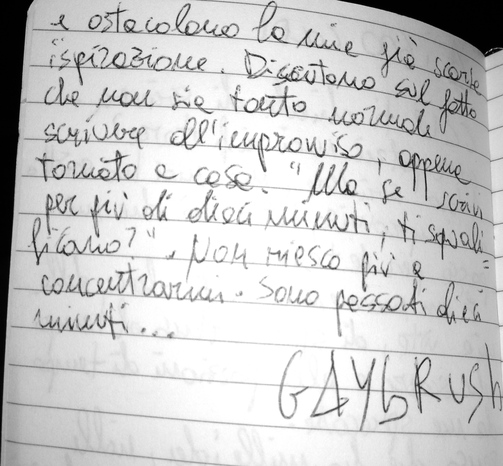 e ostacolano la mia già scarsa
ispirazione. Discutono sul fatto
che non sia tanto normale
scrivere all'improvviso, appena
tornato a casa. "Ma se scrivi
per più di dieci minuti, ti squali=
ficano?". Non riesco più a
concentrarmi. Sono passati dieci
minuti...
GAYBRUSH